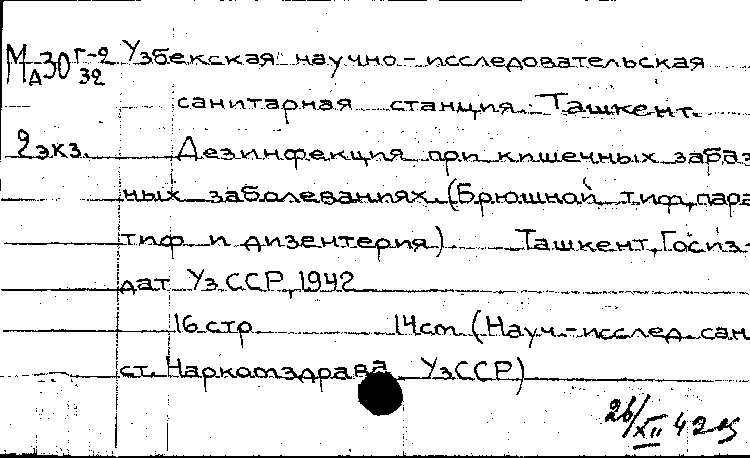 МД30 Г-2/32 Узбекская научно-исследовательская
санитарная станция. Ташкент.
2 экз. Дезинфекция при кишечных зараз
ных заболеваниях. (Брюшной тиф, пара
тиф и дизентерия) Ташкент, Госиз-
дат УзССР, 1942
16 стр. 14 cm (Науч.-исслед. сан.
ст. Наркомздрава УзССР)
26/XII 42